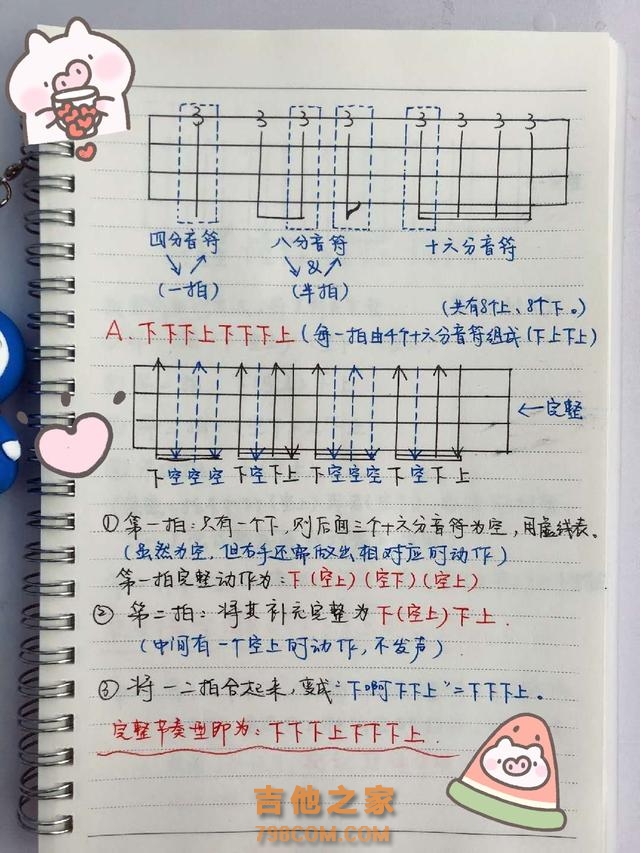 3 3 3 3 3 3 3 3
四分音符 八分音符 十六分音符
&
(一拍) (半拍)
(共有8个上、8个下。)
A. 下下下上下下下上 (每一拍由4个十六分音符组成(下上下上)
←完整
下空空空 下空下上 下空空空 下空下上
①第一拍:只有一个下,则后面三个十六分音符为空,用虚线表。
(虽然为空,但右手还需做出相对应的动作)
第一拍完整动作为:下(空上)(空下)(空上)
② 第二拍:将其补充完整为下(空上)下上.
(中间有一个空上的动作,不发声)
③ 将一二拍合起来,变成"下啊下下上"=下下下上。
完整节奏型即为:下下下上下下下上.
吉他之家
798COM.COM